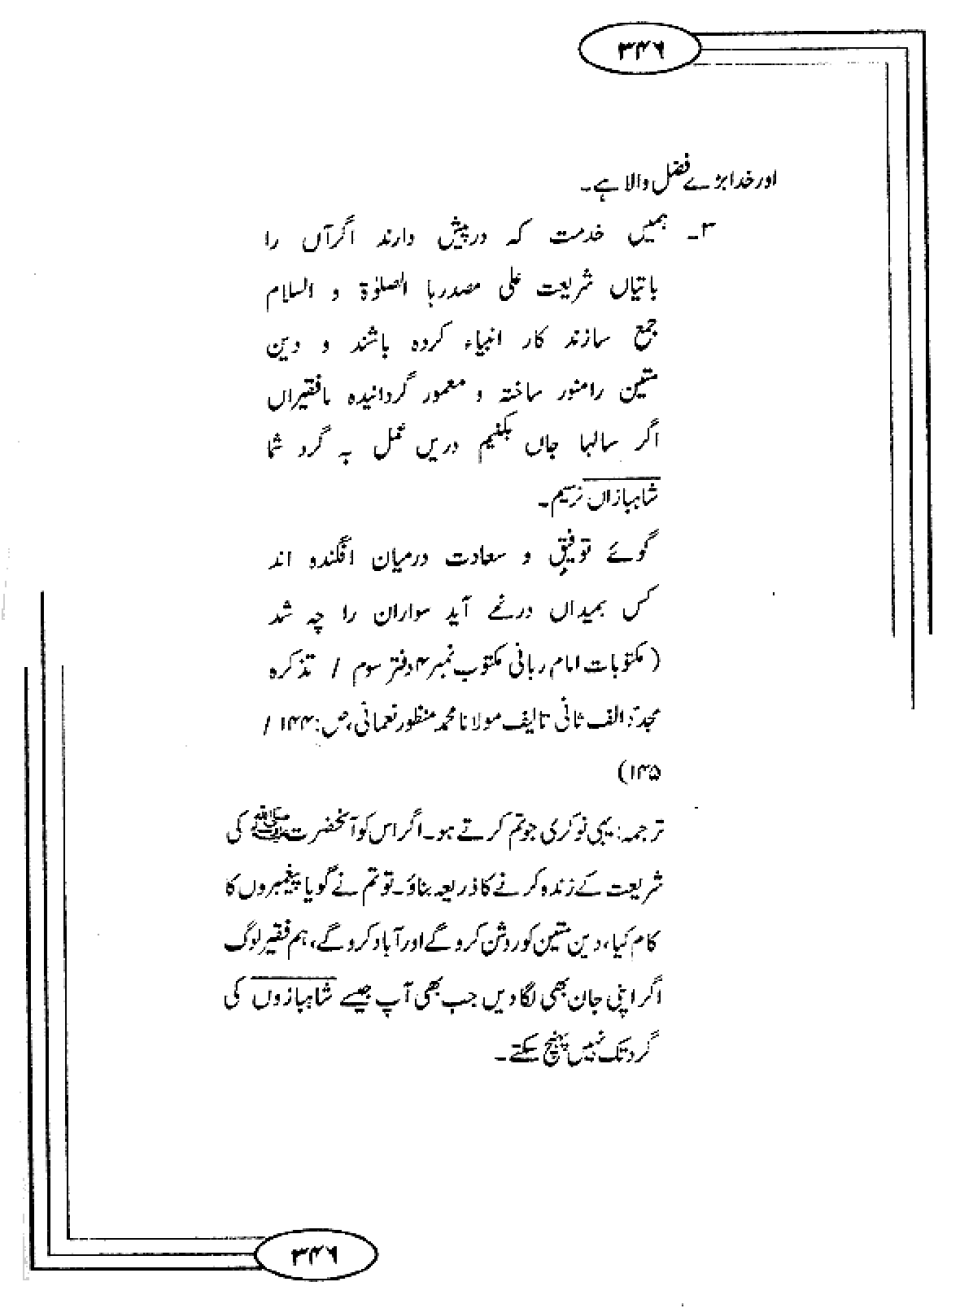 ۳۴۶
اور خدا بڑے فضل والا ہے۔
۳۔ ہمیں خدمت کہ درپیش دارند اگر آں را
باتیاں شریعت علی مصدرہا الصلوٰۃ و السلام
جمع سازند کار انبیاء کردہ باشند و دین
متین رامنور ساختہ و معمور گردانیدہ مافقیراں
اگر سالہا جاں بکنیم دریں عمل بہ گرد شما
شاہبازاں نرسیم۔
گوئے توفیق و سعادت درمیان افگندہ اند
کس بمیداں درنمے آید سواران را چہ شد
(مکتوبات امام ربانی مکتوب نمبر ۴ دفتر سوم / تذکرہ
مجدّد الف ثانی تالیف مولانا محمد منظور نعمانی، ص: ۱۴۴ /
۱۴۵)
ترجمہ: یہی نوکری جو تم کرتے ہو۔ اگر اس کو آنحضرت ﷺ کی
شریعت کے زندہ کرنے کا ذریعہ بناؤ۔ تو تم نے گویا پیغمبروں کا
کام کیا، دین متین کو روشن کروگے اور آباد کروگے، ہم فقیر لوگ
اگر اپنی جان بھی لگا دیں جب بھی آپ جیسے شاہبازوں کی
گرد تک نہیں پہنچ سکتے۔
۳۴۶